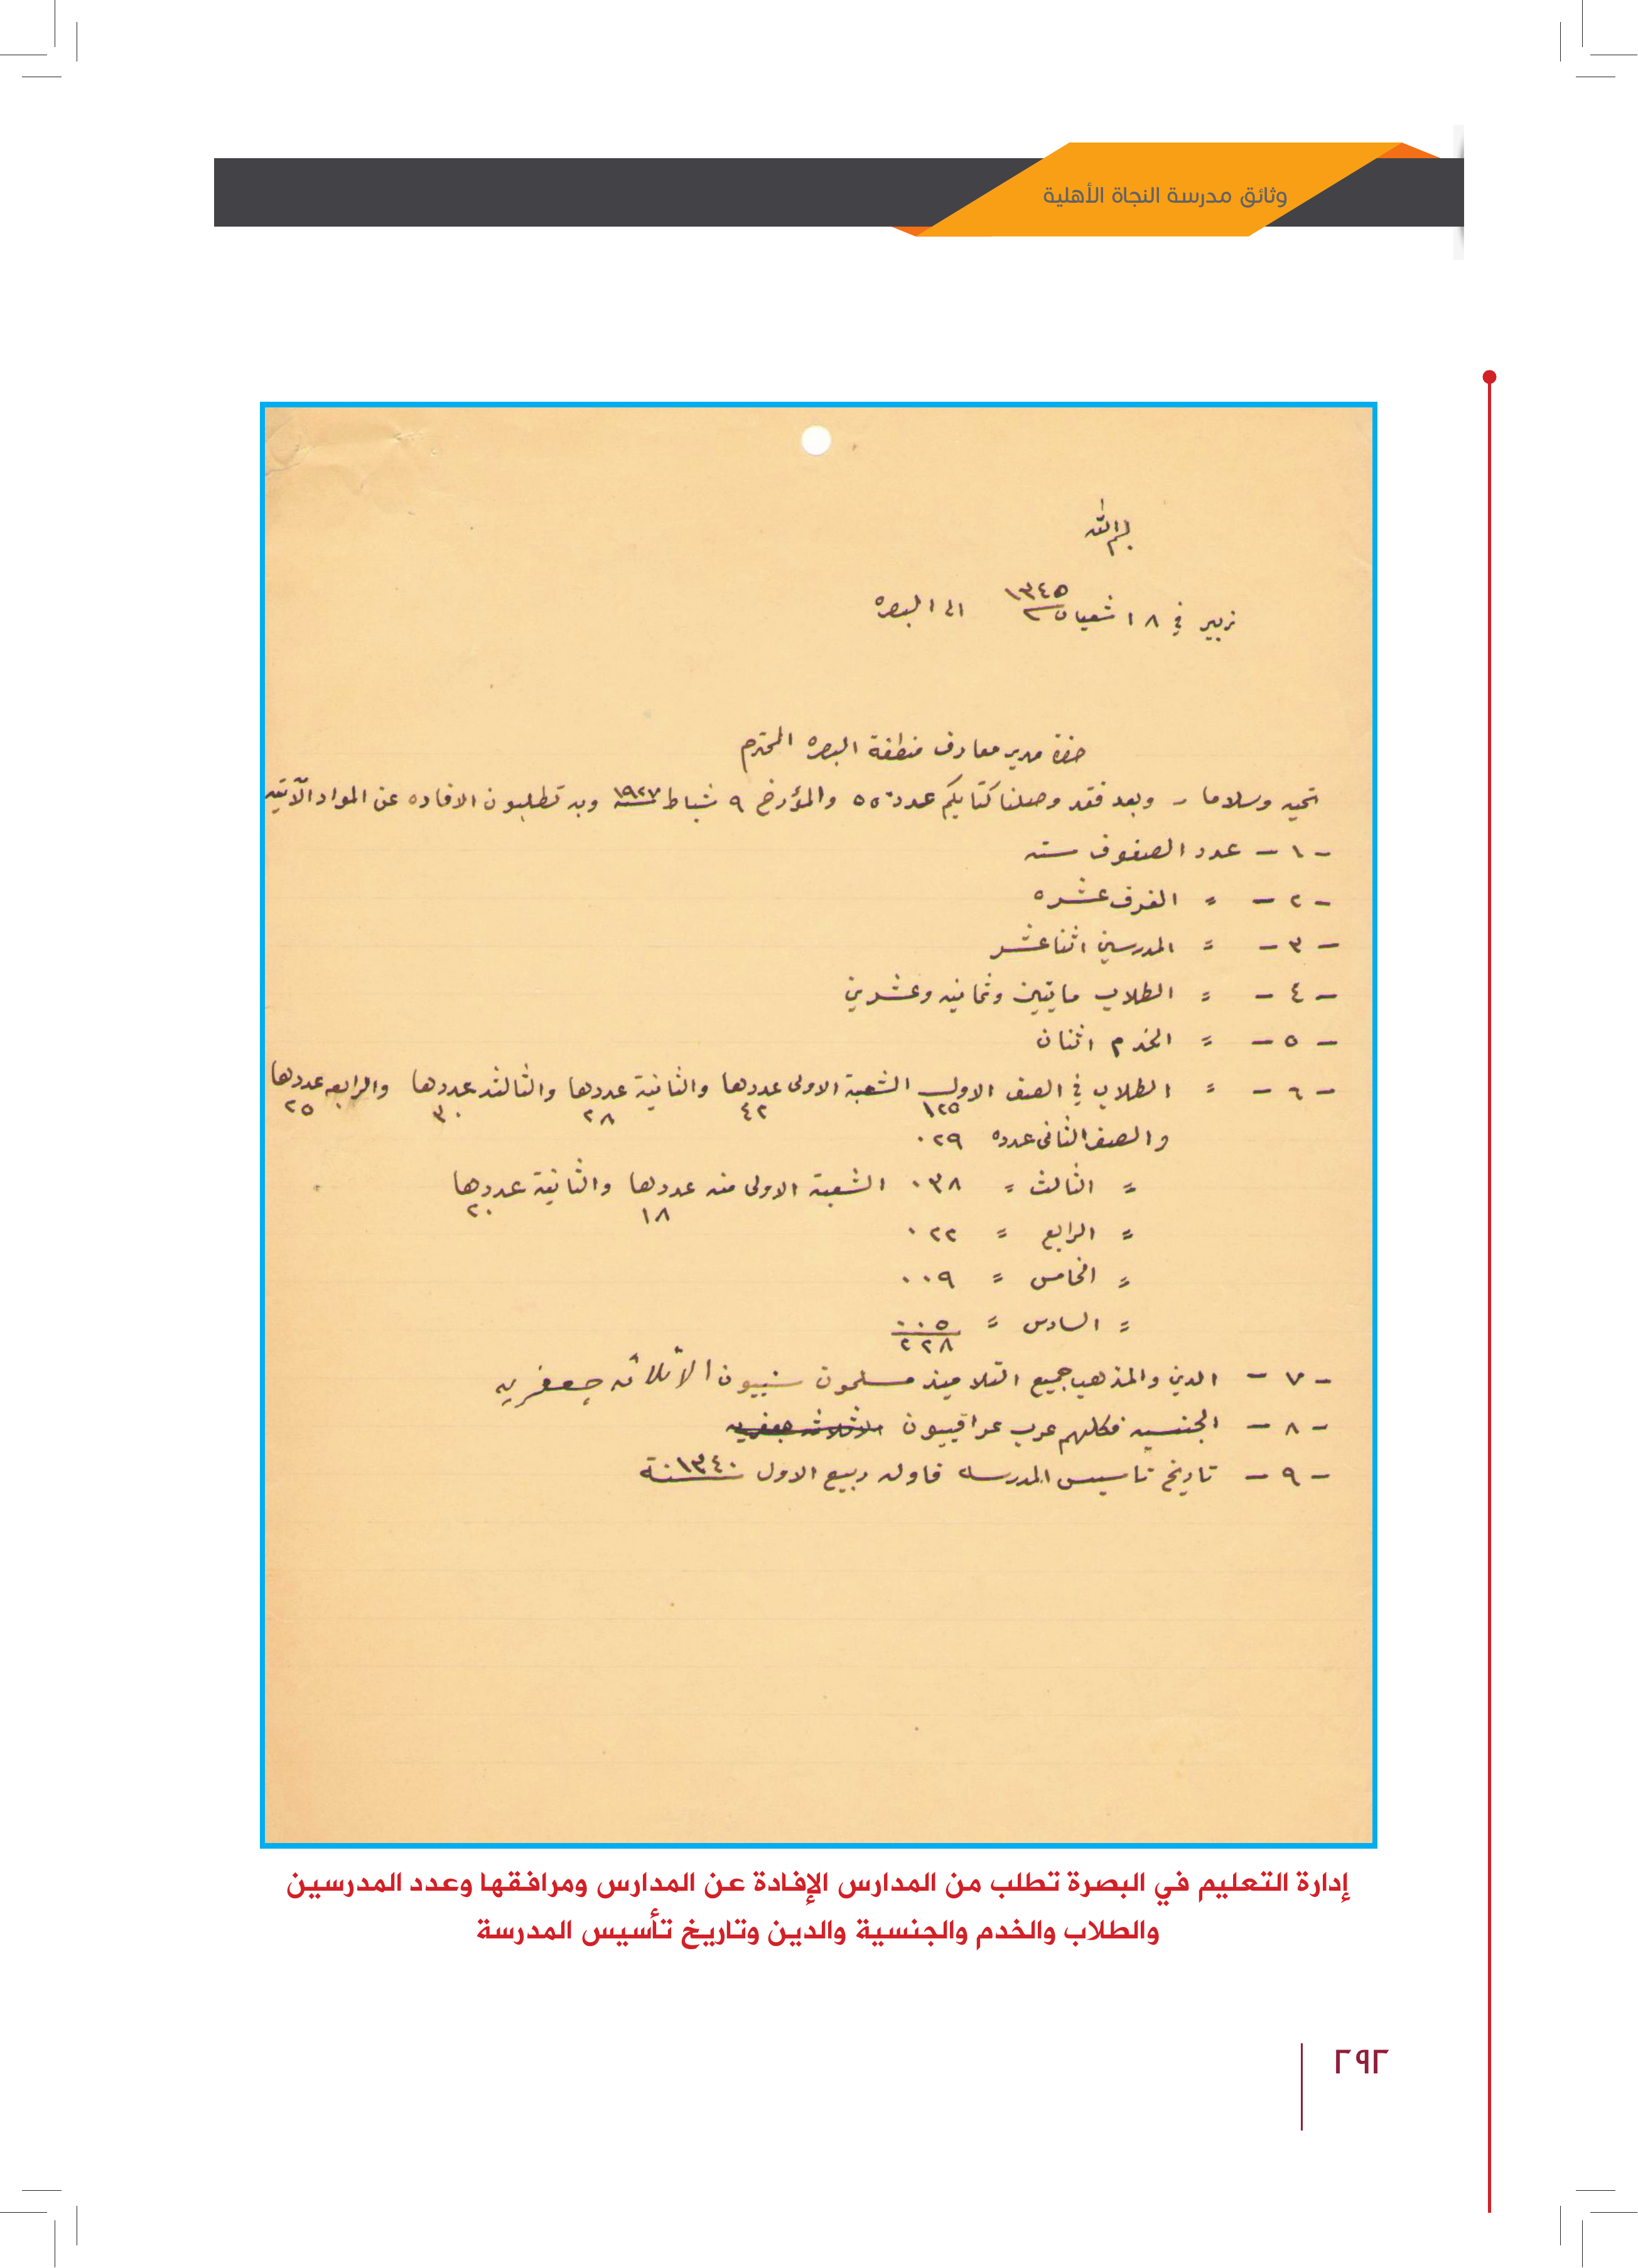 وثائق مدرسة النجاة الأهلية
بسم الله
زبير في ١٨ شعبان ١٣٤٥ الى البصره
حضرة مدير معارف منطقة البصره المحترم
تحيه وسلاما - وبعد فقد وصلنا كتابكم عدد ٥٥٠ والمؤرخ ٩ شباط ١٩٢٧ وبه تطلبون الافاده عن المواد الآتيه
- ١ - عدد الصفوف سته
- ٢ - = الغرف عشره
- ٣ - = المدرسين اثنا عشر
- ٤ - = الطلاب مايتين وثمانيه وعشرين
- ٥ - = الخدم اثنان
- ٦ - = الطلاب في الصف الاول ١٢٥ الشعبة الاولى عددها ٤٢ والثانية عددها ٢٨ والثالثه عددها ٣٠ والرابعه عددها ٢٥
والصف الثاني عدده ٠٢٩
= الثالث = ٠٣٨ الشعبة الاولى منه عددها ١٨ والثانية عددها ٢٠
= الرابع = ٠٢٢
= الخامس = ٠٠٩
= السادس = ٠٠٥
٢٢٨
- ٧ - الدين والمذهب جميع التلاميذ مسلمون سنييون الا ثلاثه جعفريه
- ٨ - الجنسيه فكلهم عرب عراقييون الا ثلاثه جعفريه
- ٩ - تاريخ تاسيس المدرسه فاول ربيع الاول سنة ١٣٤٠
إدارة التعليم في البصرة تطلب من المدارس الإفادة عن المدارس ومرافقها وعدد المدرسين
والطلاب والخدم والجنسية والدين وتاريخ تأسيس المدرسة
٢٩٢